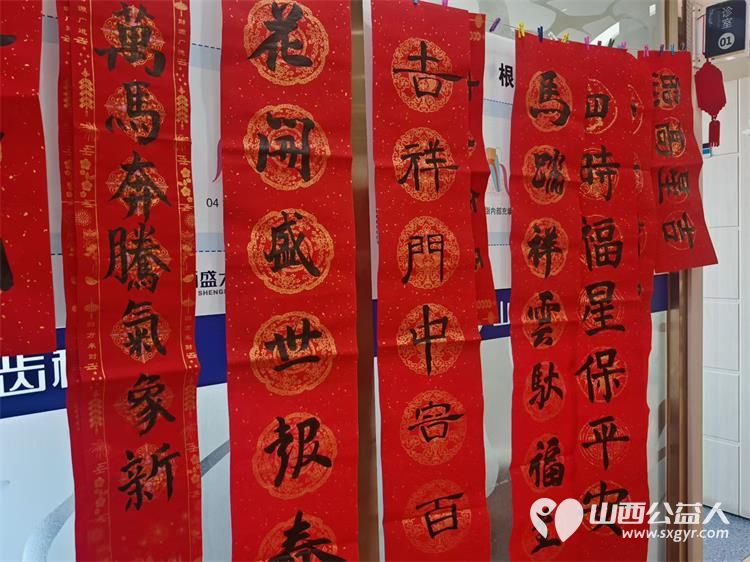 萬馬奔騰氣象新
花開盛世報春
吉祥門中容百
馬踏祥雲馱福至
四時福星保平安
诊室
01
根
04
盛
SHENG
齿
山西公益人
www.sxgyr.com